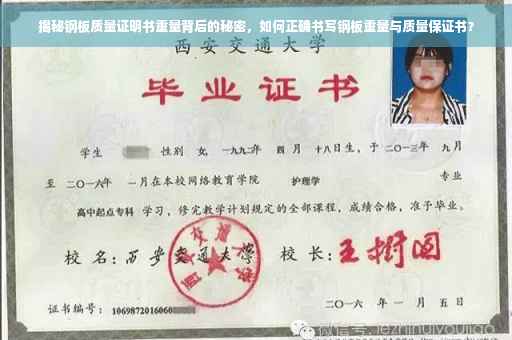 揭秘钢板质量证明书重量背后的秘密，如何正确书写钢板重量与质量保证书？
西安交通大学
毕业证书
学生 性别 女，一九九二年 四 月 十八日生，于 二〇一三年 九 月
至 二〇一六年 一月在本校网络教育学院 护理学 专业
高中起点专科 学习，修完教学计划规定的全部课程，成绩合格，准予毕业。
校 名：西安交通大学 校 长：王树国
西安交通大学
证书编号：1069872016060
二〇一六 年 一 月 五 日
微信号: jezhihuiyoujiao